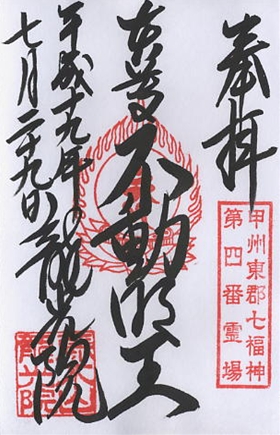 奉拝
甲州東郡七福神
第四番霊場
不動明王
平成十九年
七月二十九日
龍光院
龍光院